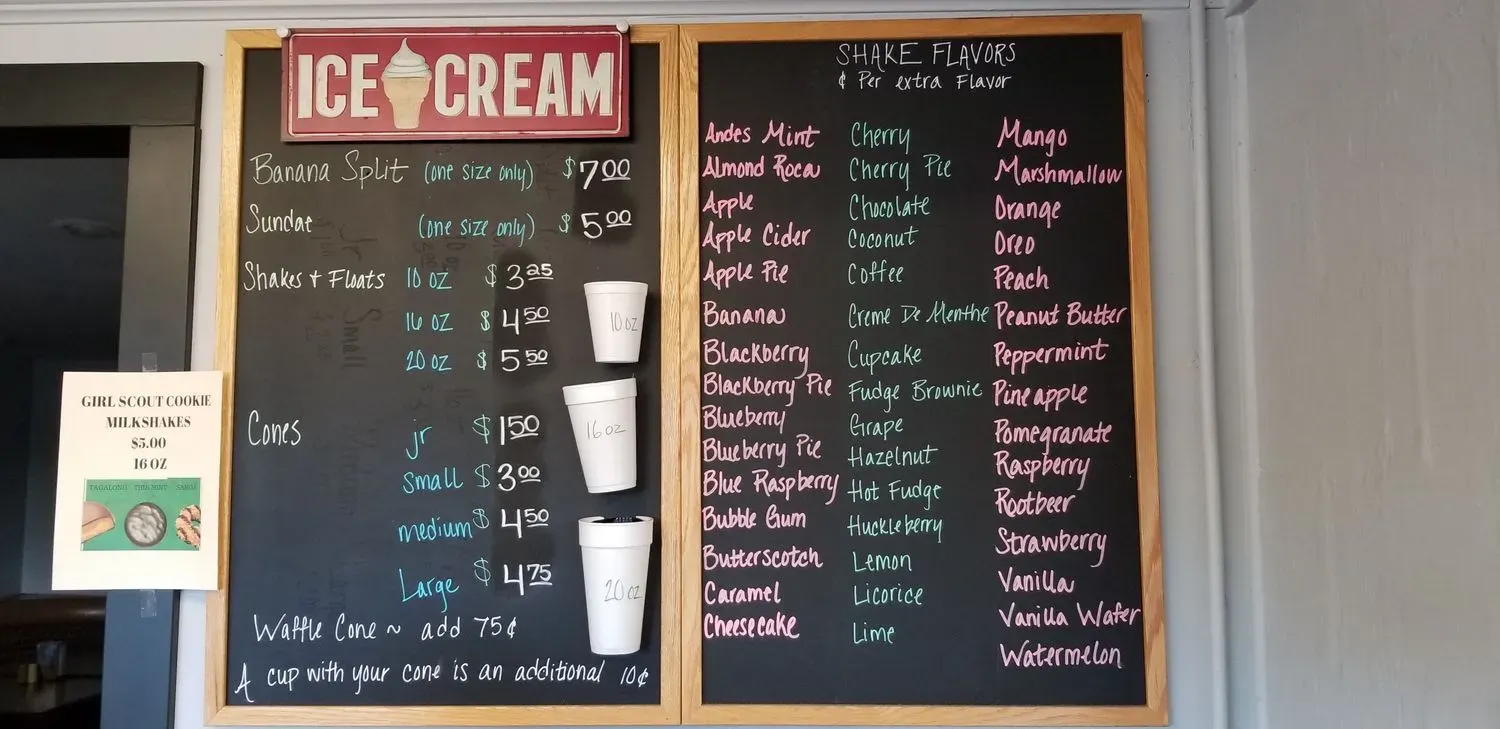 ICE CREAM
Banana Split (one size only) $7.00
Sundae (one size only) $5.00
Shakes + Floats 10 oz $3.25
16 oz $4.50
20 oz $5.50
10 oz
16 oz
20 oz
Cones jr $1.50
small $3.00
medium $4.50
Large $4.75
Waffle Cone ~ add 75¢
A cup with your cone is an additional 10¢
GIRL SCOUT COOKIE
MILKSHAKES
$5.00
16 OZ
TAGALONG THIN MINT SAMOA
SHAKE FLAVORS
¢ Per extra Flavor
Andes Mint
Almond Roca
Apple
Apple Cider
Apple Pie
Banana
Blackberry
Blackberry Pie
Blueberry
Blueberry Pie
Blue Raspberry
Bubble Gum
Butterscotch
Caramel
Cheesecake
Cherry
Cherry Pie
Chocolate
Coconut
Coffee
Creme De Menthe
Cupcake
Fudge Brownie
Grape
Hazelnut
Hot Fudge
Huckleberry
Lemon
Licorice
Lime
Mango
Marshmallow
Orange
Oreo
Peach
Peanut Butter
Peppermint
Pineapple
Pomegranate
Raspberry
Rootbeer
Strawberry
Vanilla
Vanilla Wafer
Watermelon